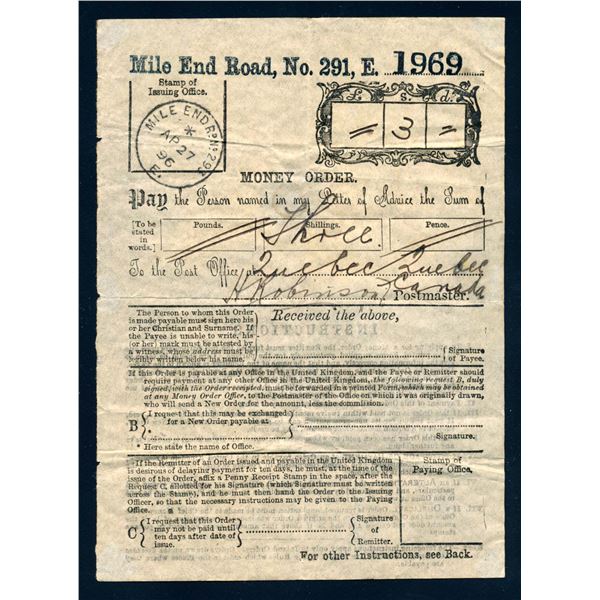 Mile End Road, No. 291, E. 1969
Stamp of
Issuing Office.
MILE END Rd No 293
*
AP 27
96
E.
£. s. d.
= 3 =
MONEY ORDER.
Pay the Person named in my Letter of Advice the Sum of
[To be
stated
in
words.]
Pounds. Shillings. Pence.
Three
To the Post Office at Quebec Quebec
H Robinson Postmaster. Canada
The Person to whom this Order
is made payable must sign here his
or her Christian and Surname. If
the Payee is unable to write, his
(or her) mark must be attested by
a witness, whose address must be
legibly written below his name.
Received the above,
Signature
of Payee.
If this Order is payable at any Office in the United Kingdom, and the Payee or Remitter should
require payment at any other Office in the United Kingdom, the following request B, duly
signed, with the Order receipted, must be forwarded in a printed Form, which may be obtained
at any Money Order Office, to the Postmaster of the Office on which it was originally drawn,
who will send a New Order for the amount, less the commission.
B
I request that this may be exchanged
for a New Order payable at
*
Signature.
* Here state the name of Office.
If the Remitter of an Order issued and payable in the United Kingdom
is desirous of delaying payment for ten days, he must, at the time of the
issue of the Order, affix a Penny Receipt Stamp in the space, after the
Request C, allotted for his Signature (which Signature must be written
across the Stamp), and he must then hand the Order to the Issuing
Officer, so that the necessary instructions may be given to the Paying
Office.
Stamp of
Paying Office.
C
I request that this Order
may not be paid until
ten days after date of
issue.
Signature
of
Remitter.
For other Instructions, see Back.